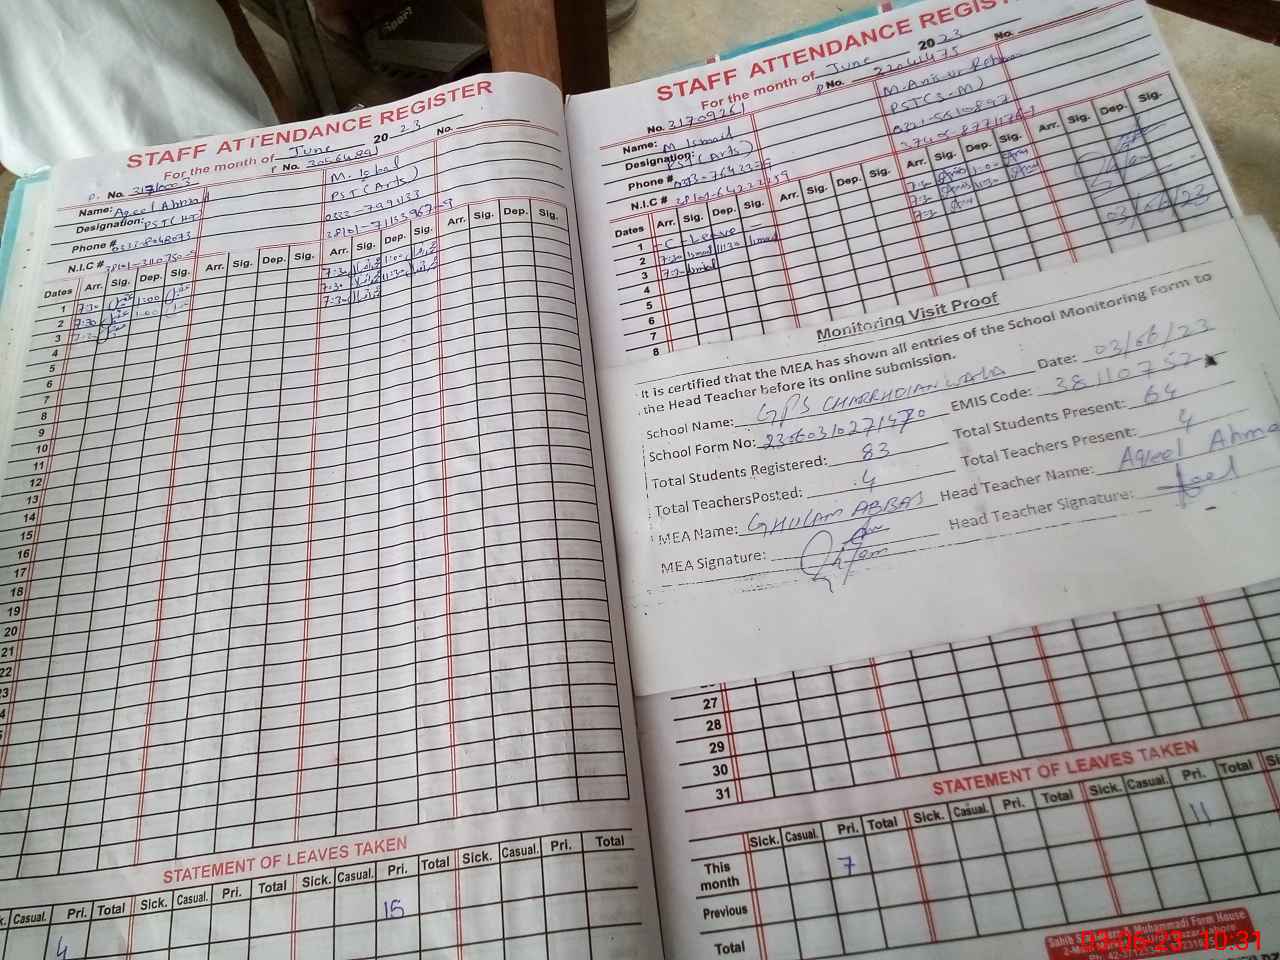 STAFF ATTENDANCE REGISTER
For the month of June 2023
P. No. 31710003
No. 30564891
No.
Name: Aqeel Ahmad
M. Iqbal
Designation: PST
PST (Arts)
Phone # 0333-8048073
N.I.C #
Dates Arr. Sig. Dep. Sig. Arr. Sig. Dep. Sig. Arr. Sig. Dep. Sig. Arr. Sig. Dep. Sig.
1 7:30 1:00 7:30 1:00
2 7:30 1:00 7:30 11:30
3 7:30 7:30
4
5
6
7
8
9
10
11
12
13
14
15
16
17
18
19
20
21
22
23
STATEMENT OF LEAVES TAKEN
Casual. Pri. Total Sick. Casual. Pri. Total Sick. Casual. Pri. Total Sick. Casual. Pri. Total
4 15
STAFF ATTENDANCE REGISTER
For the month of June 2023
No. 31709261
P No.
No.
Name: M Ismail
Designation: PST (Arts)
PST (S-M)
Phone #
N.I.C #
Dates Arr. Sig. Dep. Sig. Arr. Sig. Dep. Sig. Arr. Sig. Dep. Sig. Arr. Sig. Dep. Sig.
1 - C - Leave -
2 7:30 Ismail 11:30 Ismail
3 7:30 Ismail
4
5
6
7
8
03/06/23
Monitoring Visit Proof
It is certified that the MEA has shown all entries of the School Monitoring Form to
the Head Teacher before its online submission.
School Name: GPS CHARRHOIANWALA Date: 03/06/23
School Form No: 23060310271470 EMIS Code: 38110752
Total Students Registered: 83 Total Students Present: 64
Total TeachersPosted: 4 Total Teachers Present: 4
MEA Name: GHULAM ABBAS Head Teacher Name: Aqeel Ahma
MEA Signature: Head Teacher Signature: Aqeel
27
28
29
30
31
STATEMENT OF LEAVES TAKEN
Sick. Casual. Pri. Total Sick. Casual. Pri. Total Sick. Casual. Pri. Total
This month 7 11
Previous
Total
Muhammadi Form House
03-06-23 10:31